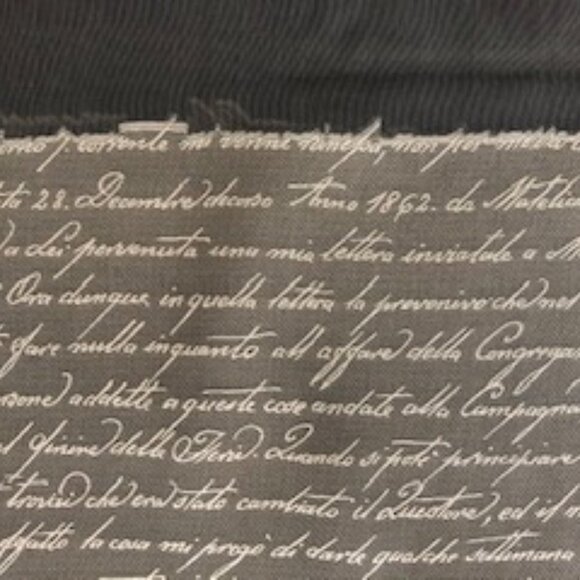 corrente mi venne
28. Decembre decorso Anno 1862. da
a Lei pervenuta una mia lettera inviatale a
Ora dunque in quella lettera la prevenivo che nel
fare nulla inquanto all affare della
addette a queste cose andate alla Campagna
finire della Fiera. Quando si potè principiare
trovai che era stato cambiato il Questore, ed il
la cosa mi pregò di darle qualche settimana